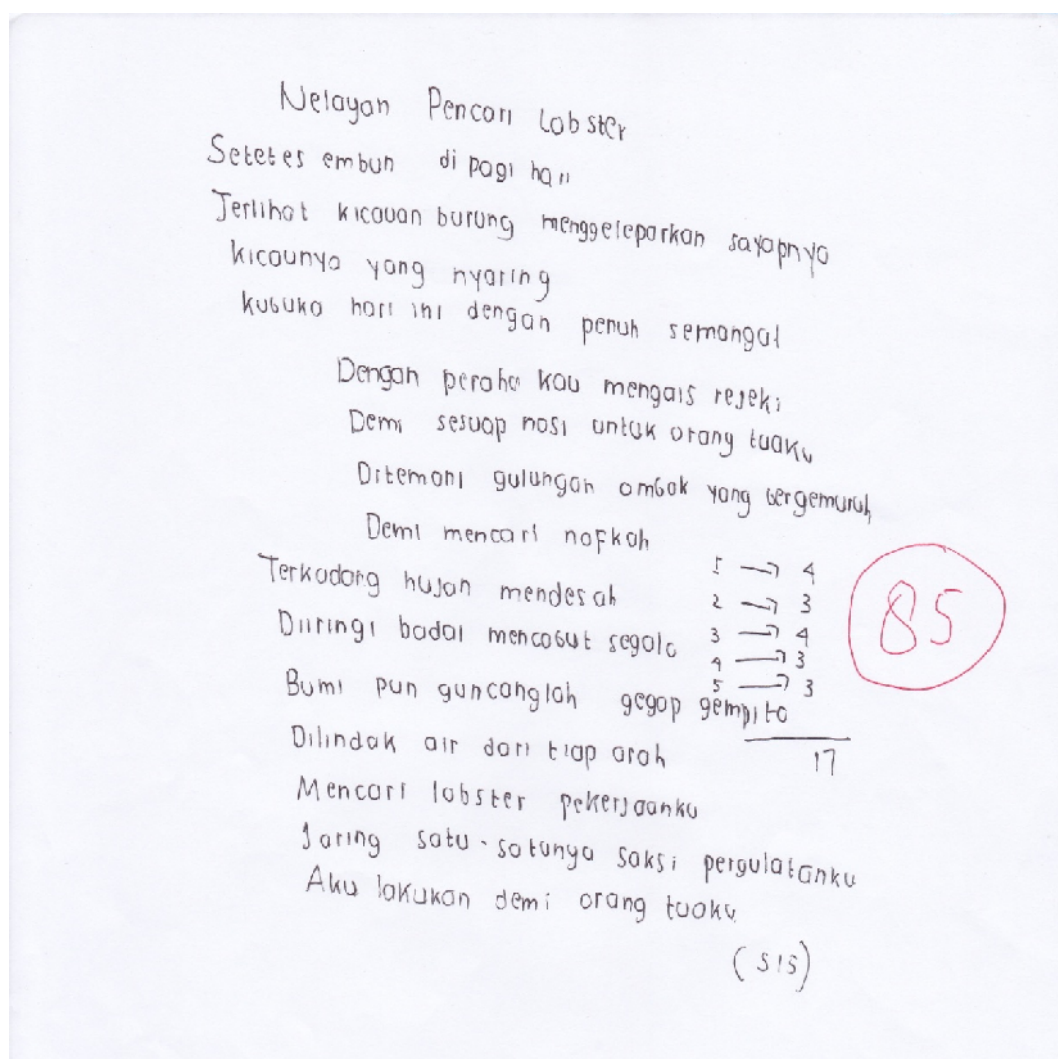 Nelayan Pencari Lobster
Setetes embun di pagi hari
Terlihat kicauan burung menggeleparkan sayapnya
Kicaunya yang nyaring
Kubuka hari ini dengan penuh semangat
Dengan perahu kau mengais rejeki
Demi sesuap nasi untuk orang tuaku
Ditemani gulungan ombak yang bergemuruh
Demi mencari nafkah
Terkadang hujan mendesah
1 → 4
Diiringi badai mencabut segala
2 → 3
3 → 4
4 → 3
85
Bumi pun guncanglah gegap gempita
5 → 3
Dilindak air dari tiap arah
17
Mencari lobster pekerjaanku
Jaring satu-satunya saksi pergulatanku
Aku lakukan demi orang tuaku
(SIS)